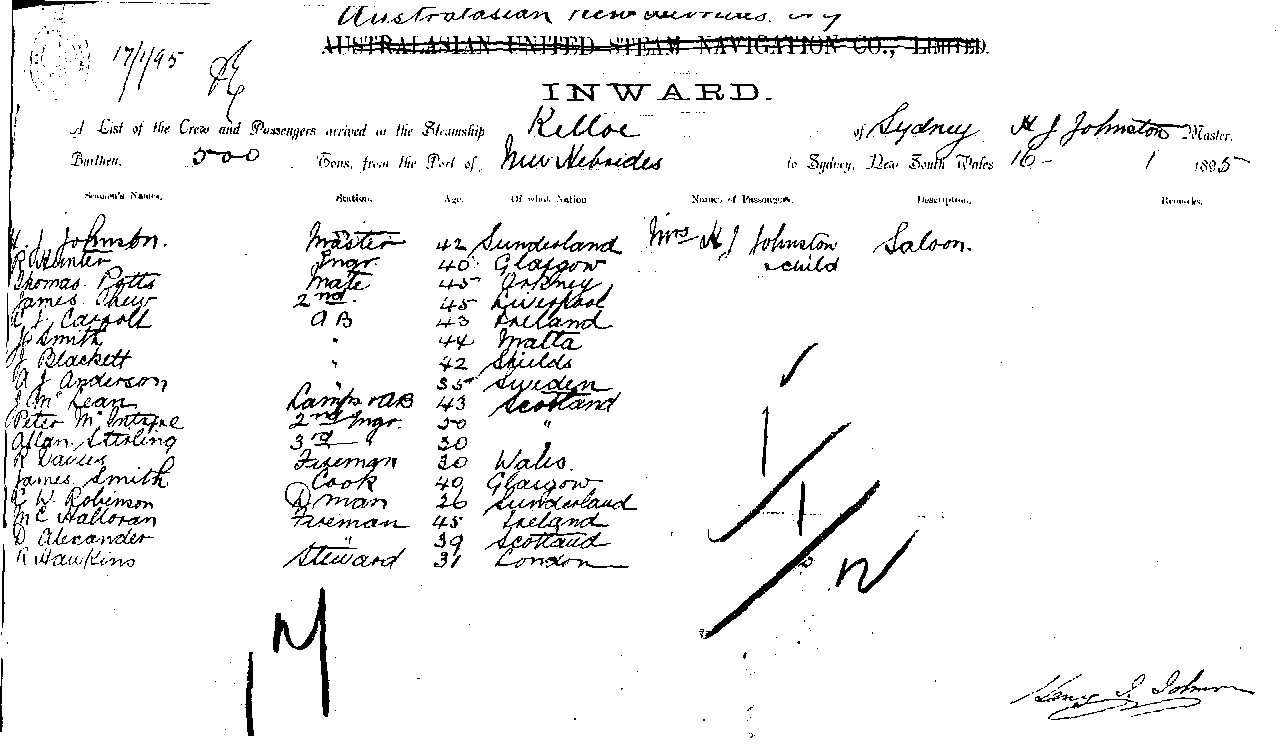 Australasian New Hebrides Coy
AUSTRALASIAN UNITED STEAM NAVIGATION CO., LIMITED.
17/1/95
INWARD.
A List of the Crew and Passengers arrived in the Steamship Kelloe of Sydney H J Johnston Master,
Burthen, 500 Tons, from the Port of, New Hebrides to Sydney, New South Wales 16- 1 1895
Seamen's Names. Station. Age. Of what Nation Names of Passengers. Description. Remarks.
H. J. Johnston. Master 42 Sunderland Mrs H J Johnston Saloon.
R Hunter Engr. 40 Glasgow & child
Thomas Potts Mate 45 Orkney
James Shew 2nd. 45 Liverpool
Carroll AB 43 Ireland
J Smith " 44 Malta
J Blackett " 42 Shields
A J Anderson " 35 Sweden
J McLean Lamps & AB 43 Scotland
Peter McIntyre 2nd Engr. 50 "
Allan Stirling 3rd " 30
R Davies Fireman 30 Wales.
James Smith Cook 49 Glasgow
W. Robinson Dman 26 Sunderland
Mc Halloran Fireman 45 Ireland
D Alexander " 39 Scotland
R Hawkins Steward 31 London